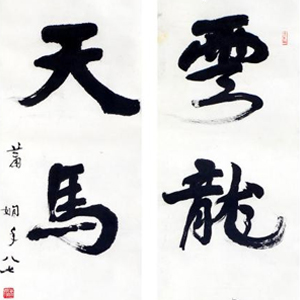 雲龍
天馬
蕭嫻年八七